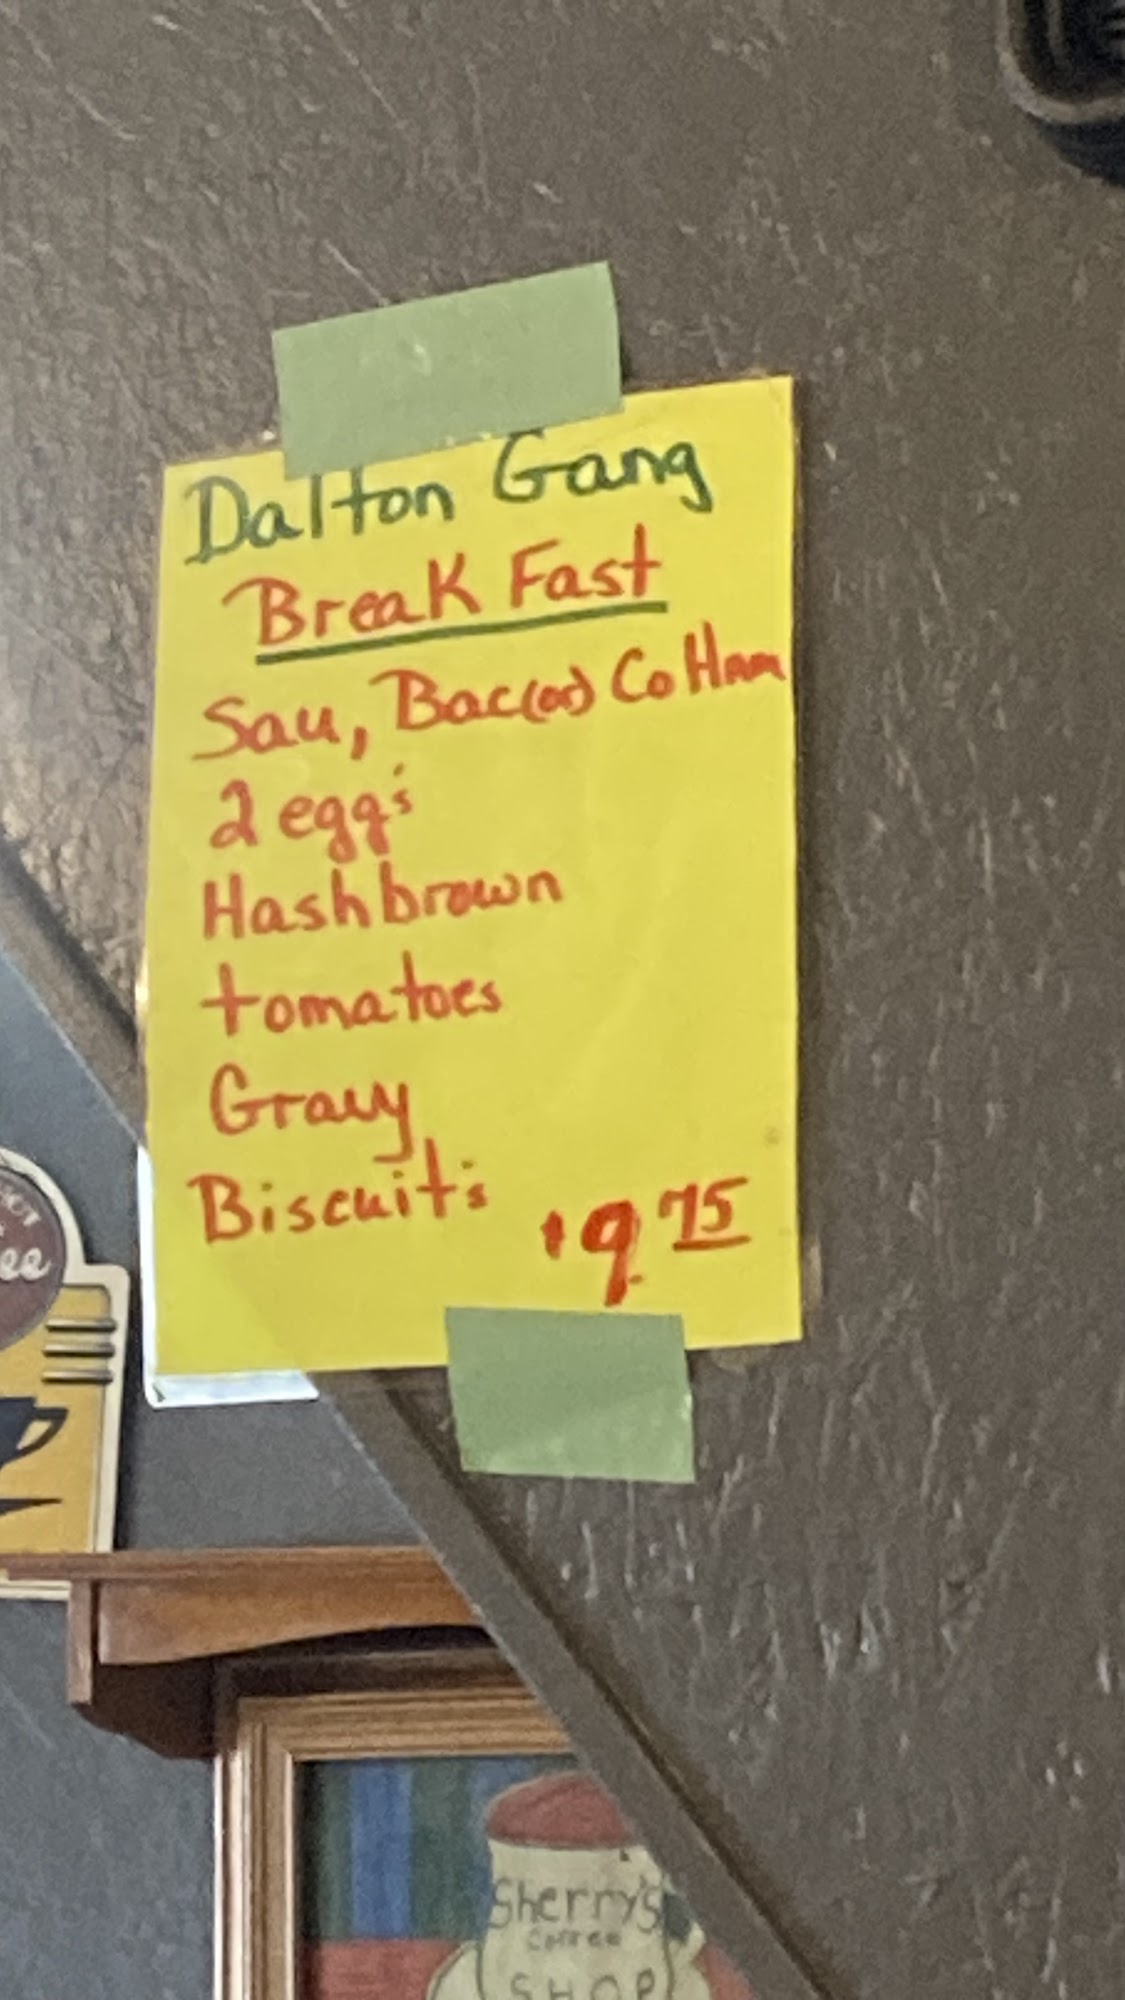 Dalton Gang
Break Fast
Sau, Bac(or) Co Ham
2 egg's
Hashbrown
tomatoes
Gravy
Biscuit's
$9.75
ee
Sherry's
Coffee
SHOP